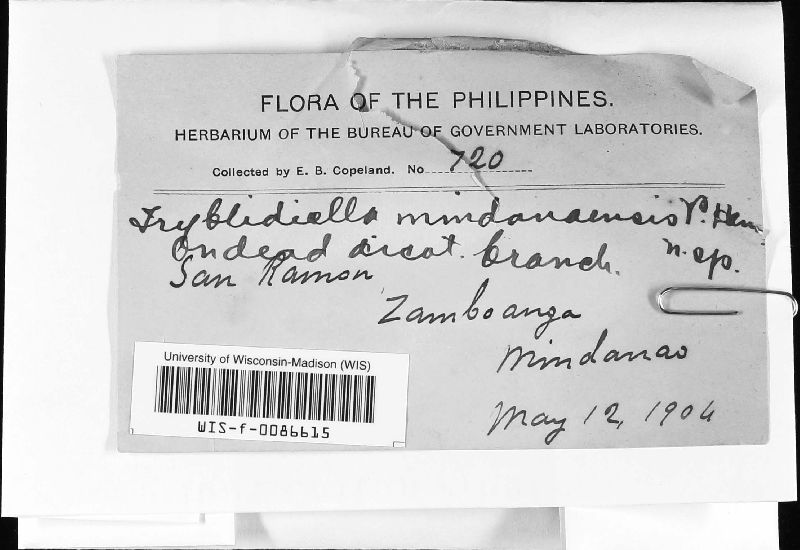 FLORA OF THE PHILIPPINES.
HERBARIUM OF THE BUREAU OF GOVERNMENT LABORATORIES.
Collected by E. B. Copeland. No. 720
Tryblidiella mindanaensis P. Hen
n. sp.
On dead dicot. branch.
San Ramon
Zamboanga
Mindanao
May 12, 1904
University of Wisconsin-Madison (WIS)
WIS-f-0086615